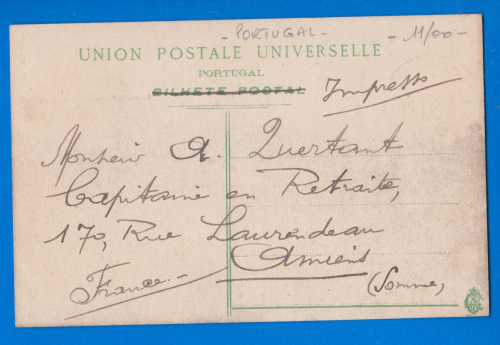 - PORTUGAL -
- 11/00 -
UNION POSTALE UNIVERSELLE
PORTUGAL
BILHETE POSTAL
Impresso
Monsieur A. Quertant
Capitaine en Retraite,
170, Rue Laurendeau
Amiens
(Somme)
France. -